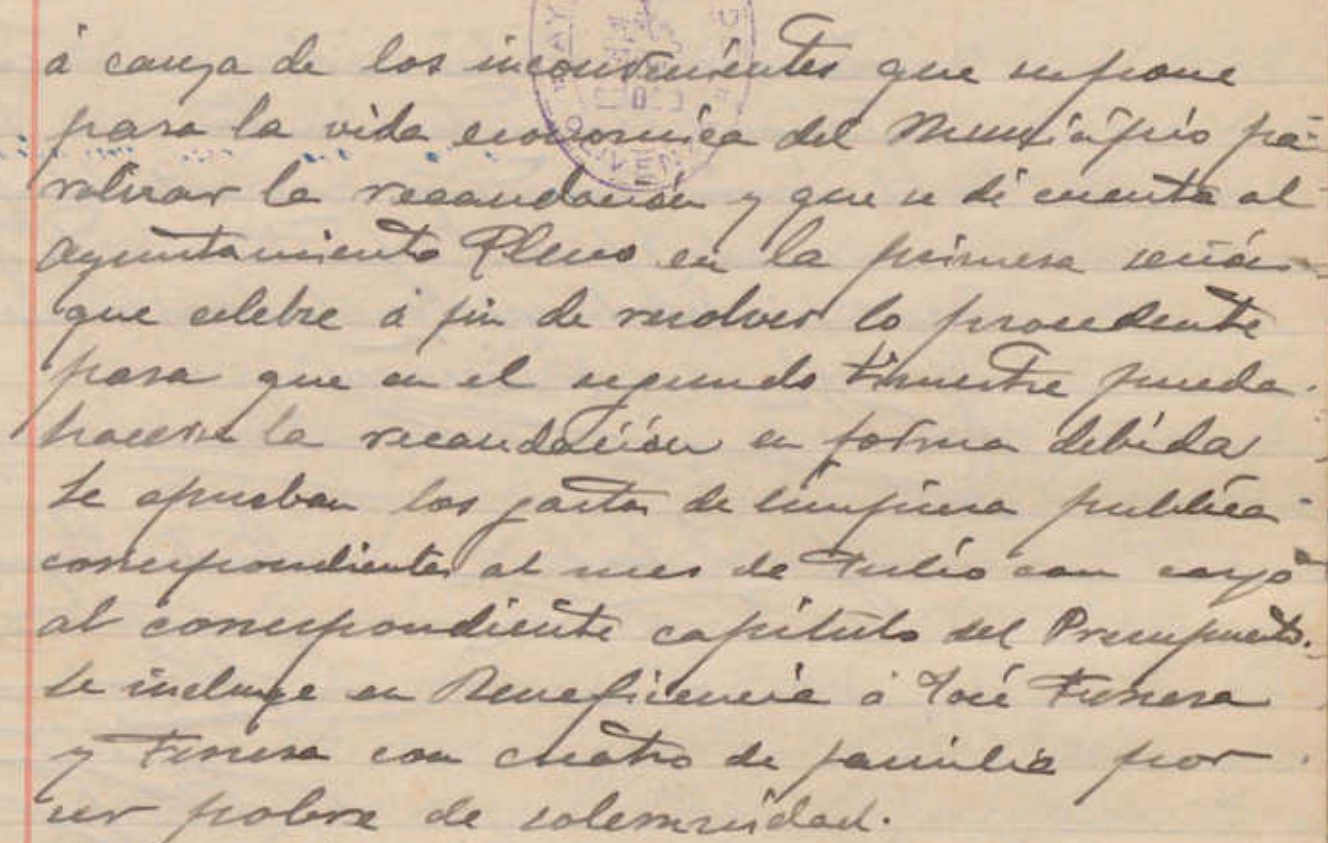 á causa de los inconvenientes que supone
para la vida economica del Municipio pa-
ralizar la recaudación y que se dé cuenta al
Ayuntamiento Pleno en la primera sesión
que celebre á fin de resolver lo procedente
para que en el segundo trimestre pueda
hacerse la recaudación en forma debida
Se aprueban los gastos de limpieza publica
correspondientes al mes de Julio con cargo
al correspondiente capitulo del Presupuesto.
Se incluye en Beneficencia á José
y con cuatro de familia por
ser pobre de solemnidad.